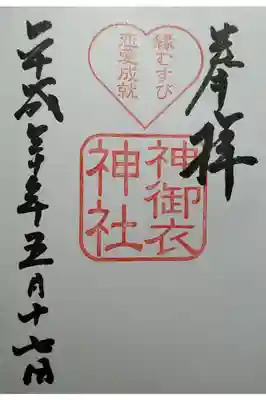 奉拝
縁むすび
恋愛成就
神御衣
神社
平成年五月十七日